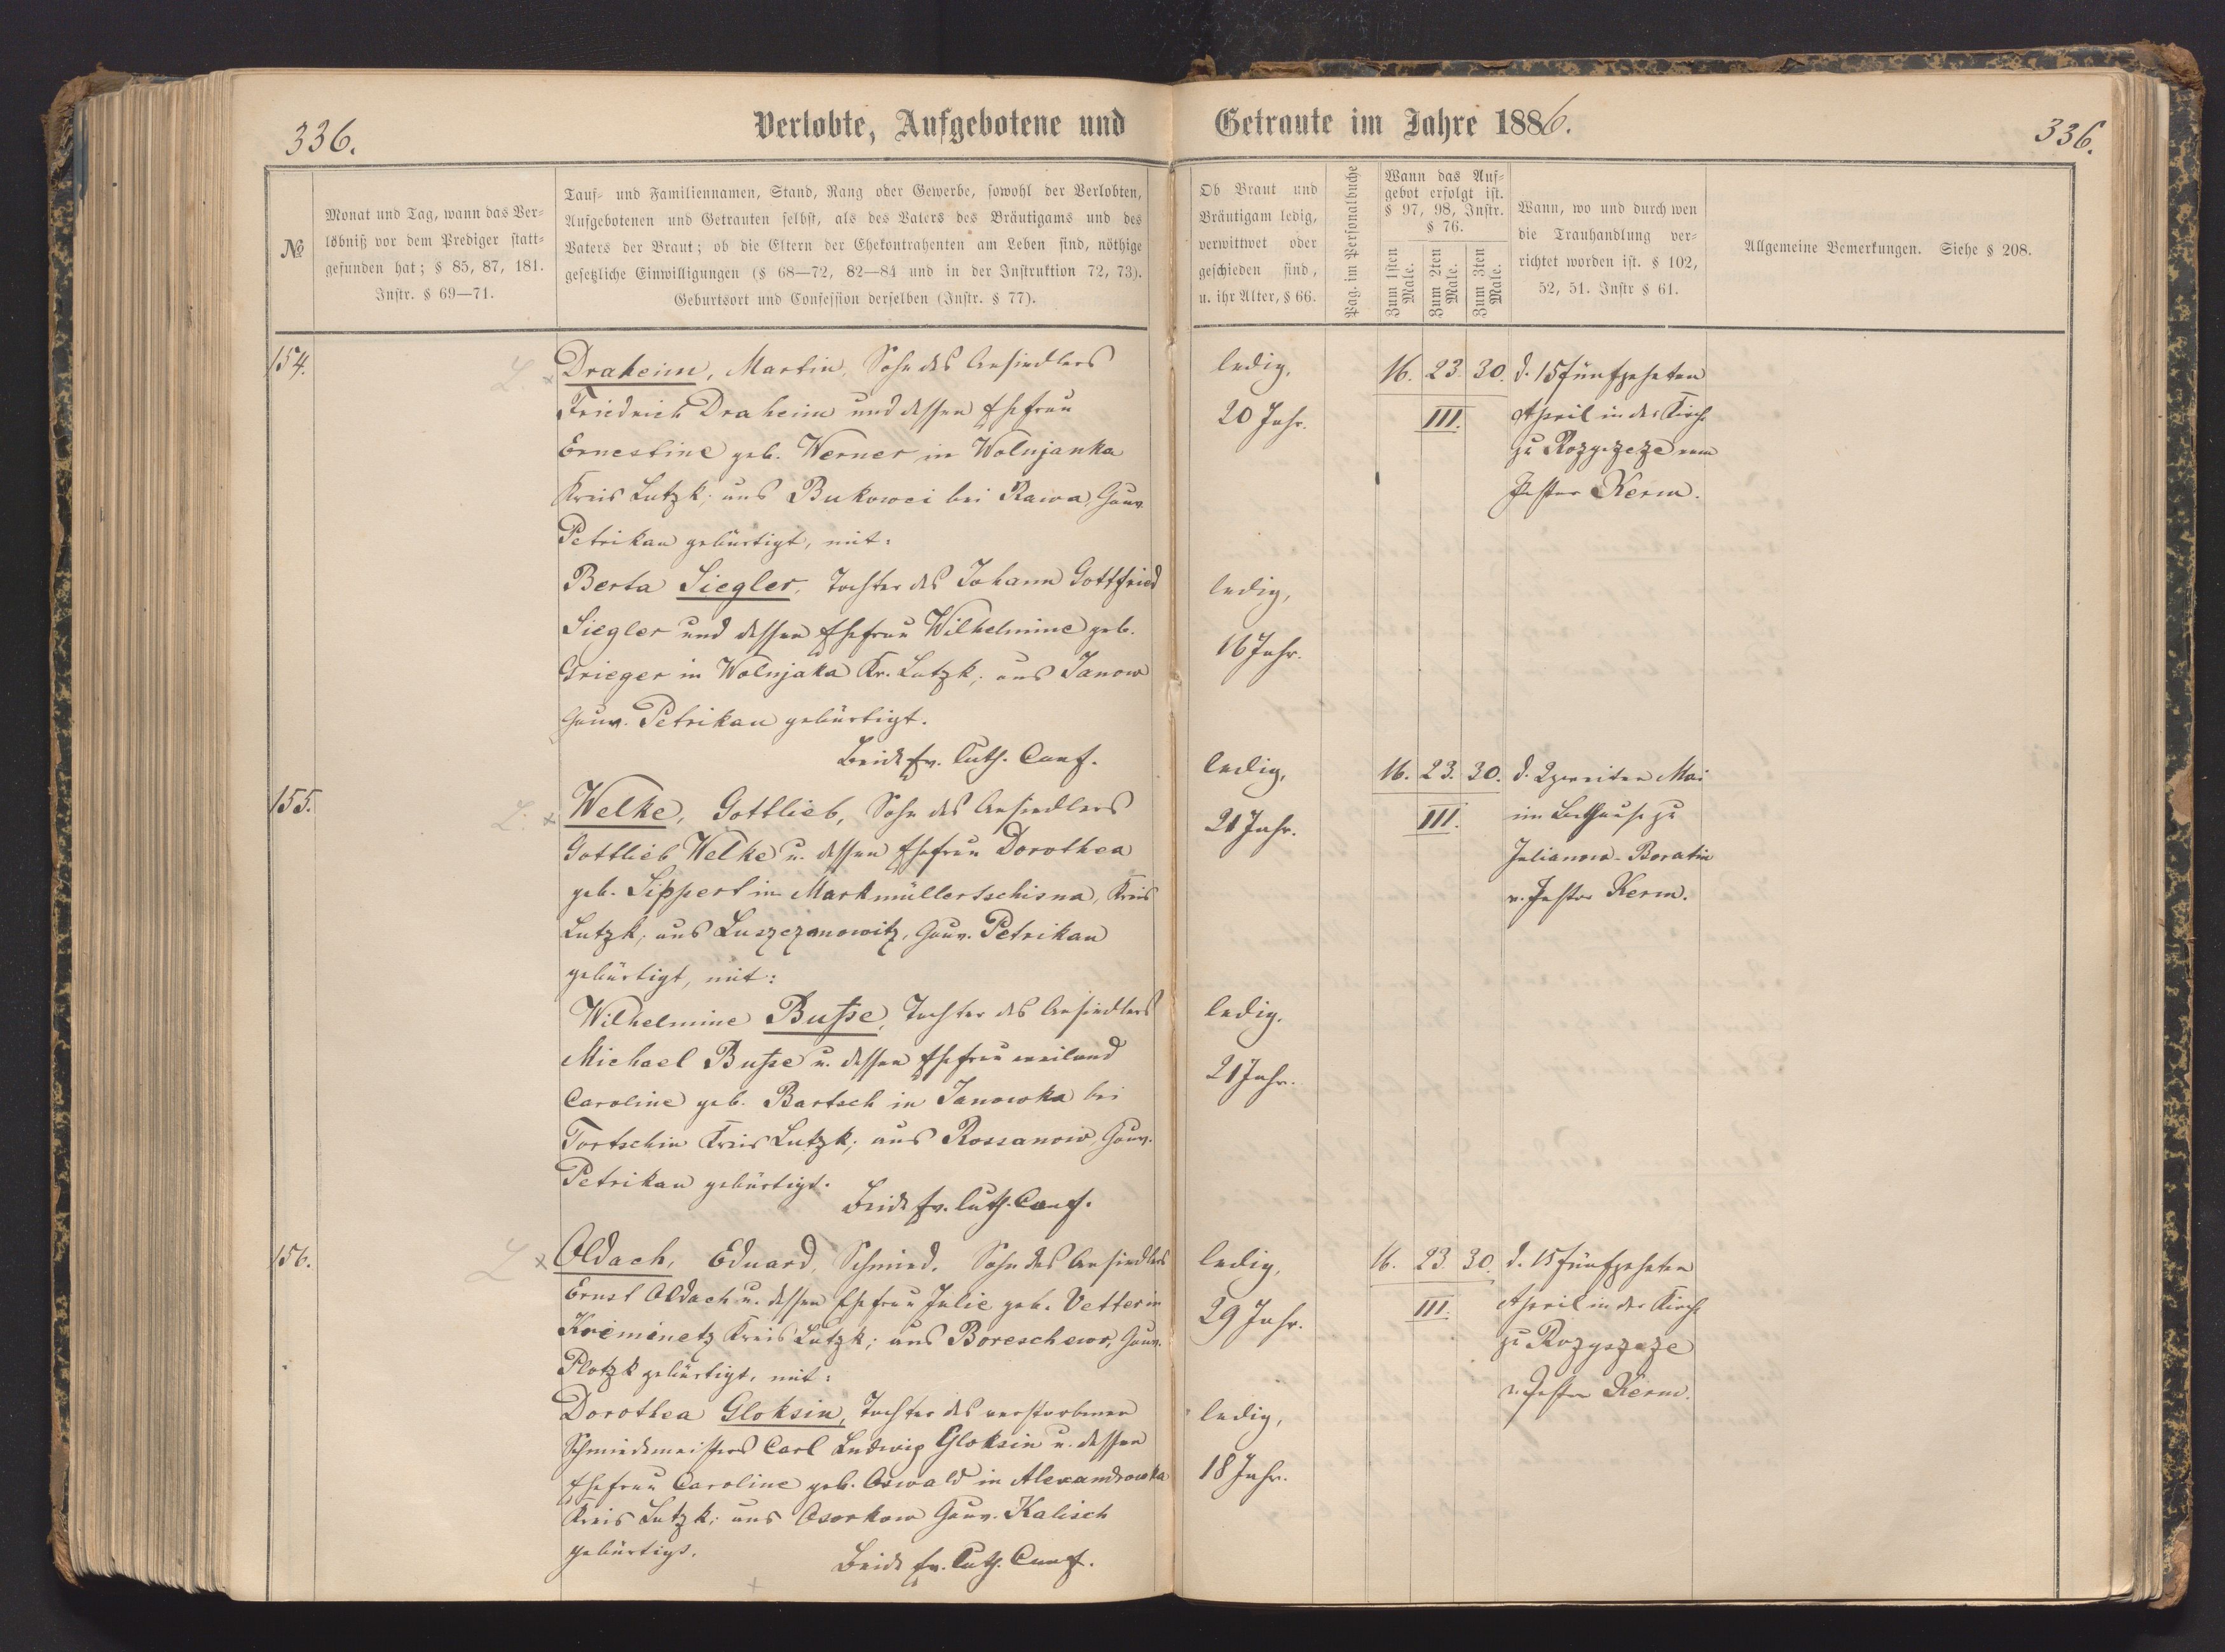 336.
Verlobte, Aufgebotene und
Getraute im Jahre 1886.
336.
№
Monat und Tag, wann das Ver-
löbniß vor dem Prediger statt-
gefunden hat; § 85, 87, 181.
Instr. § 69—71.
Tauf- und Familiennamen, Stand, Rang oder Gewerbe, sowohl der Verlobten,
Aufgebotenen und Getrauten selbst, als des Vaters des Bräutigams und des
Vaters der Braut; ob die Eltern der Ehekontrahenten am Leben sind, nöthige
gesetzliche Einwilligungen (§ 68—72, 82—84 und in der Instruktion 72, 73).
Geburtsort und Confession derselben (Instr. § 77).
Ob Braut und
Bräutigam ledig,
verwittwet oder
geschieden sind,
u. ihr Alter, § 66.
Pag. im Personalbuche
Wann das Auf-
gebot erfolgt ist.
§ 97, 98, Instr.
§ 76.
Zum 1sten
Male.
Zum 2ten
Male.
Zum 3ten
Male.
Wann, wo und durch wen
die Trauhandlung ver-
richtet worden ist. § 102,
52, 51. Instr § 61.
Allgemeine Bemerkungen. Siehe § 208.
154.
L. x
Draheim, Martin, Sohn des Ansiedlers
Friedrich Draheim und dessen Ehefrau
Ernestine geb. Werner in Wolnjanka
Kreis Lutzk; aus Bukowci bei Rawa, Gouv.
Petrikau gebürtigt, mit:
Berta Siegler, Tochter des Johann Gottfried
Siegler und dessen Ehefrau Wilhelmine geb.
Grieger in Wolnjaka Kr. Lutzk; aus Janow
Gouv. Petrikau gebürtigt.
Beide ev. luth. Conf.
ledig,
20 Jahr.
ledig,
16 Jahr.
16. 23. 30.
III.
d. 15 fünfzehnten
April in der Kirche
zu Rozyszcze vom
Pastor Kerm.
155.
L. x
Welke, Gottlieb, Sohn des Ansiedlers
Gottlieb Welke u. dessen Ehefrau Dorothea
geb. Lippert in Markmüllertschisna, Kreis
Lutzk; aus Luszczanowitz, Gouv. Petrikau
gebürtigt, mit:
Wilhelmine Busse, Tochter des Ansiedlers
Michael Busse u. dessen Ehefrau weiland
Caroline geb. Bartsch in Janowka bei
Tortschin Kreis Lutzk; aus Rossanow, Gouv.
Petrikau gebürtigt.
Beide ev. luth. Conf.
ledig,
21 Jahr.
ledig,
21 Jahr.
16. 23. 30.
III.
d. 2 zweiten Mai
im Bethause zu
Julianow-Boratin
v. Pastor Kerm.
156.
L x
Oldach, Eduard, Schmied, Sohn des Ansiedlers
Ernst Oldach u. dessen Ehefrau Julie geb. Vetter in
Kremenetz Kreis Lutzk; aus Boreschewo, Gouv.
Plotzk gebürtigt, mit:
Dorothea Gloksin, Tochter des verstorbenen
Schmiedemeisters Carl Ludwig Gloksin u. dessen
Ehefrau Caroline geb. Oswald in Alexandrowka
Kreis Lutzk; aus Osorkow Gouv. Kalisch
gebürtigt.
Beide ev. luth. Conf.
ledig,
29 Jahr.
ledig,
18 Jahr.
16. 23. 30.
III.
d. 15 fünfzehnten
April in der Kirche
zu Rozyszcze
v. Pastor Kerm.